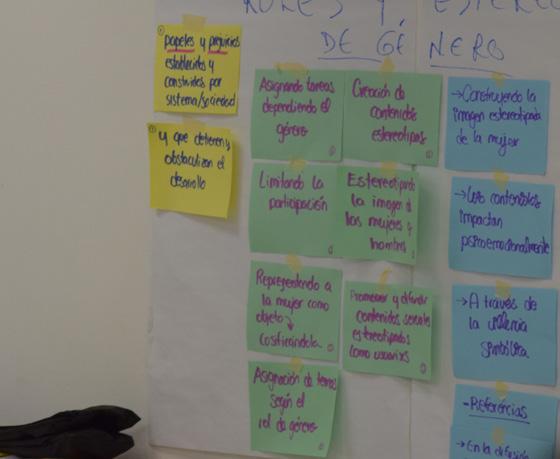 ROLES Y
DE GÉNERO
papeles y prejuicios
establecidos y
construidos por
sistema/sociedad
y que detienen y
obstaculizan el
desarrollo
Asignando tareas
dependiendo el
género
Limitando la
participación
Representando a
la mujer como
objeto
cosificándola.
Asignación de temas
según el
rol de género
Creación de
contenidos
estereotipos
Estereotipando
la imagen de
las mujeres y
hombres
Promover y difundir
contenidos sexuales
estereotipados
como usuarixs
→Construyendo la
imagen estereotipada
de la mujer
→Los contenidos
impactan
psicoemocionalmente
→A través
de la violencia
simbólica
-Referencias
→En la difusión